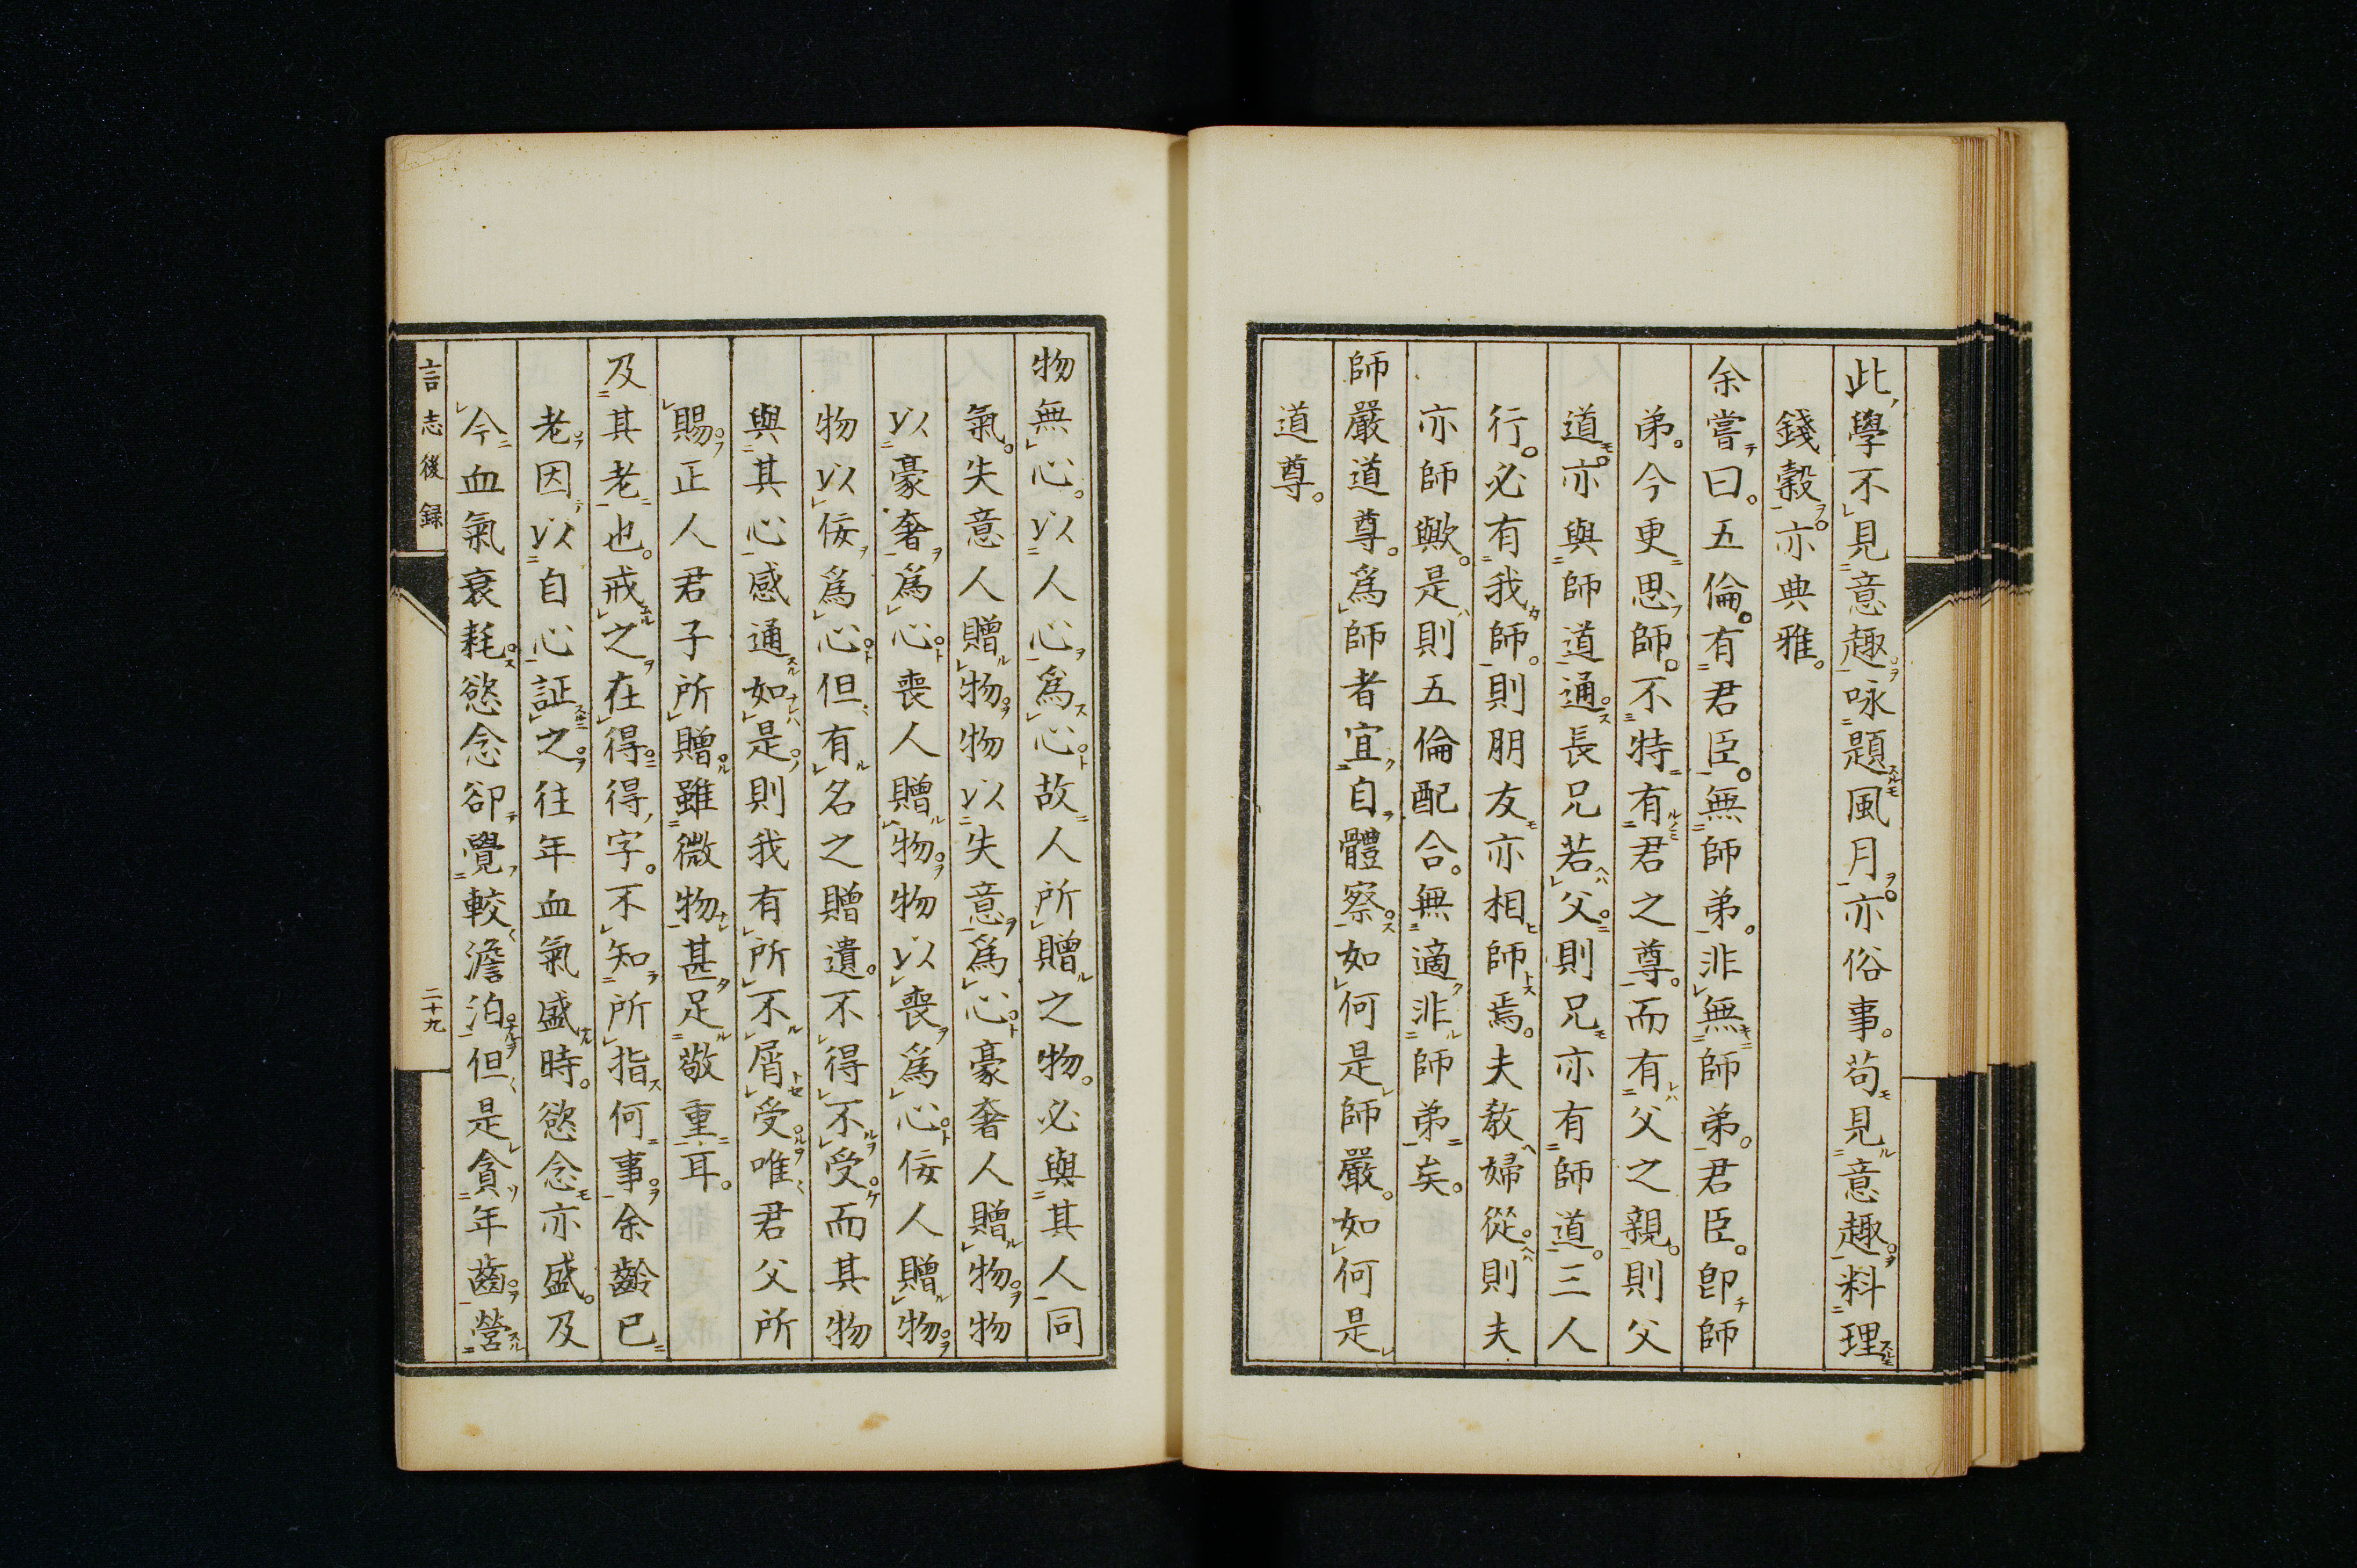 此學不見意趣咏題風月亦俗事。苟見意趣料理
錢穀亦典雅。
余嘗曰。五倫。有君臣。無師弟。非無師弟。君臣。卽師
弟。今更思師。不特有君之尊。而有父之親。則父
道亦與師道通長兄若父則兄亦有師道。三人
行。必有我師。則朋友亦相師焉。夫教婦從則夫
亦師歟。是則五倫配合。無適非師弟矣。
師嚴道尊。爲師者宜自體察如何是師嚴。如何是
道尊。
物無心。以人心爲心故人所贈之物。必與其人同
氣。失意人贈物物以失意爲心豪奢人贈物物
以豪奢爲心喪人贈物物以喪爲心佞人贈物
物以佞爲心但有名之贈遺。不得不受而其物
與其心感通如是則我有所不屑受唯君父所
賜正人君子所贈雖微物甚足敬重耳。
及其老也。戒之在得得字。不知所指何事余齡已
老因以自心証之往年血氣盛時。慾念亦盛。及
今血氣衰耗慾念卻覺較澹泊但是貪年齒營
言志後録
二十九